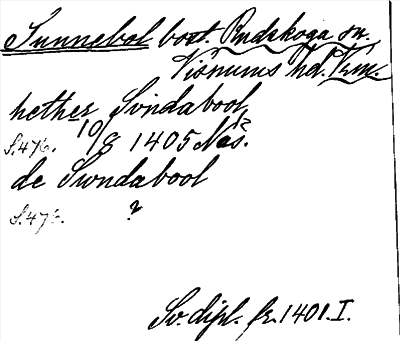 Sunnebol bost. Rudskoga sn.
Visnums hd. Vrm.
hether Svndabool
S. 476. 10/8 1405 Näs.
de Swndabool
S. 476. ?
Sv. dipl. fr. 1401. I.